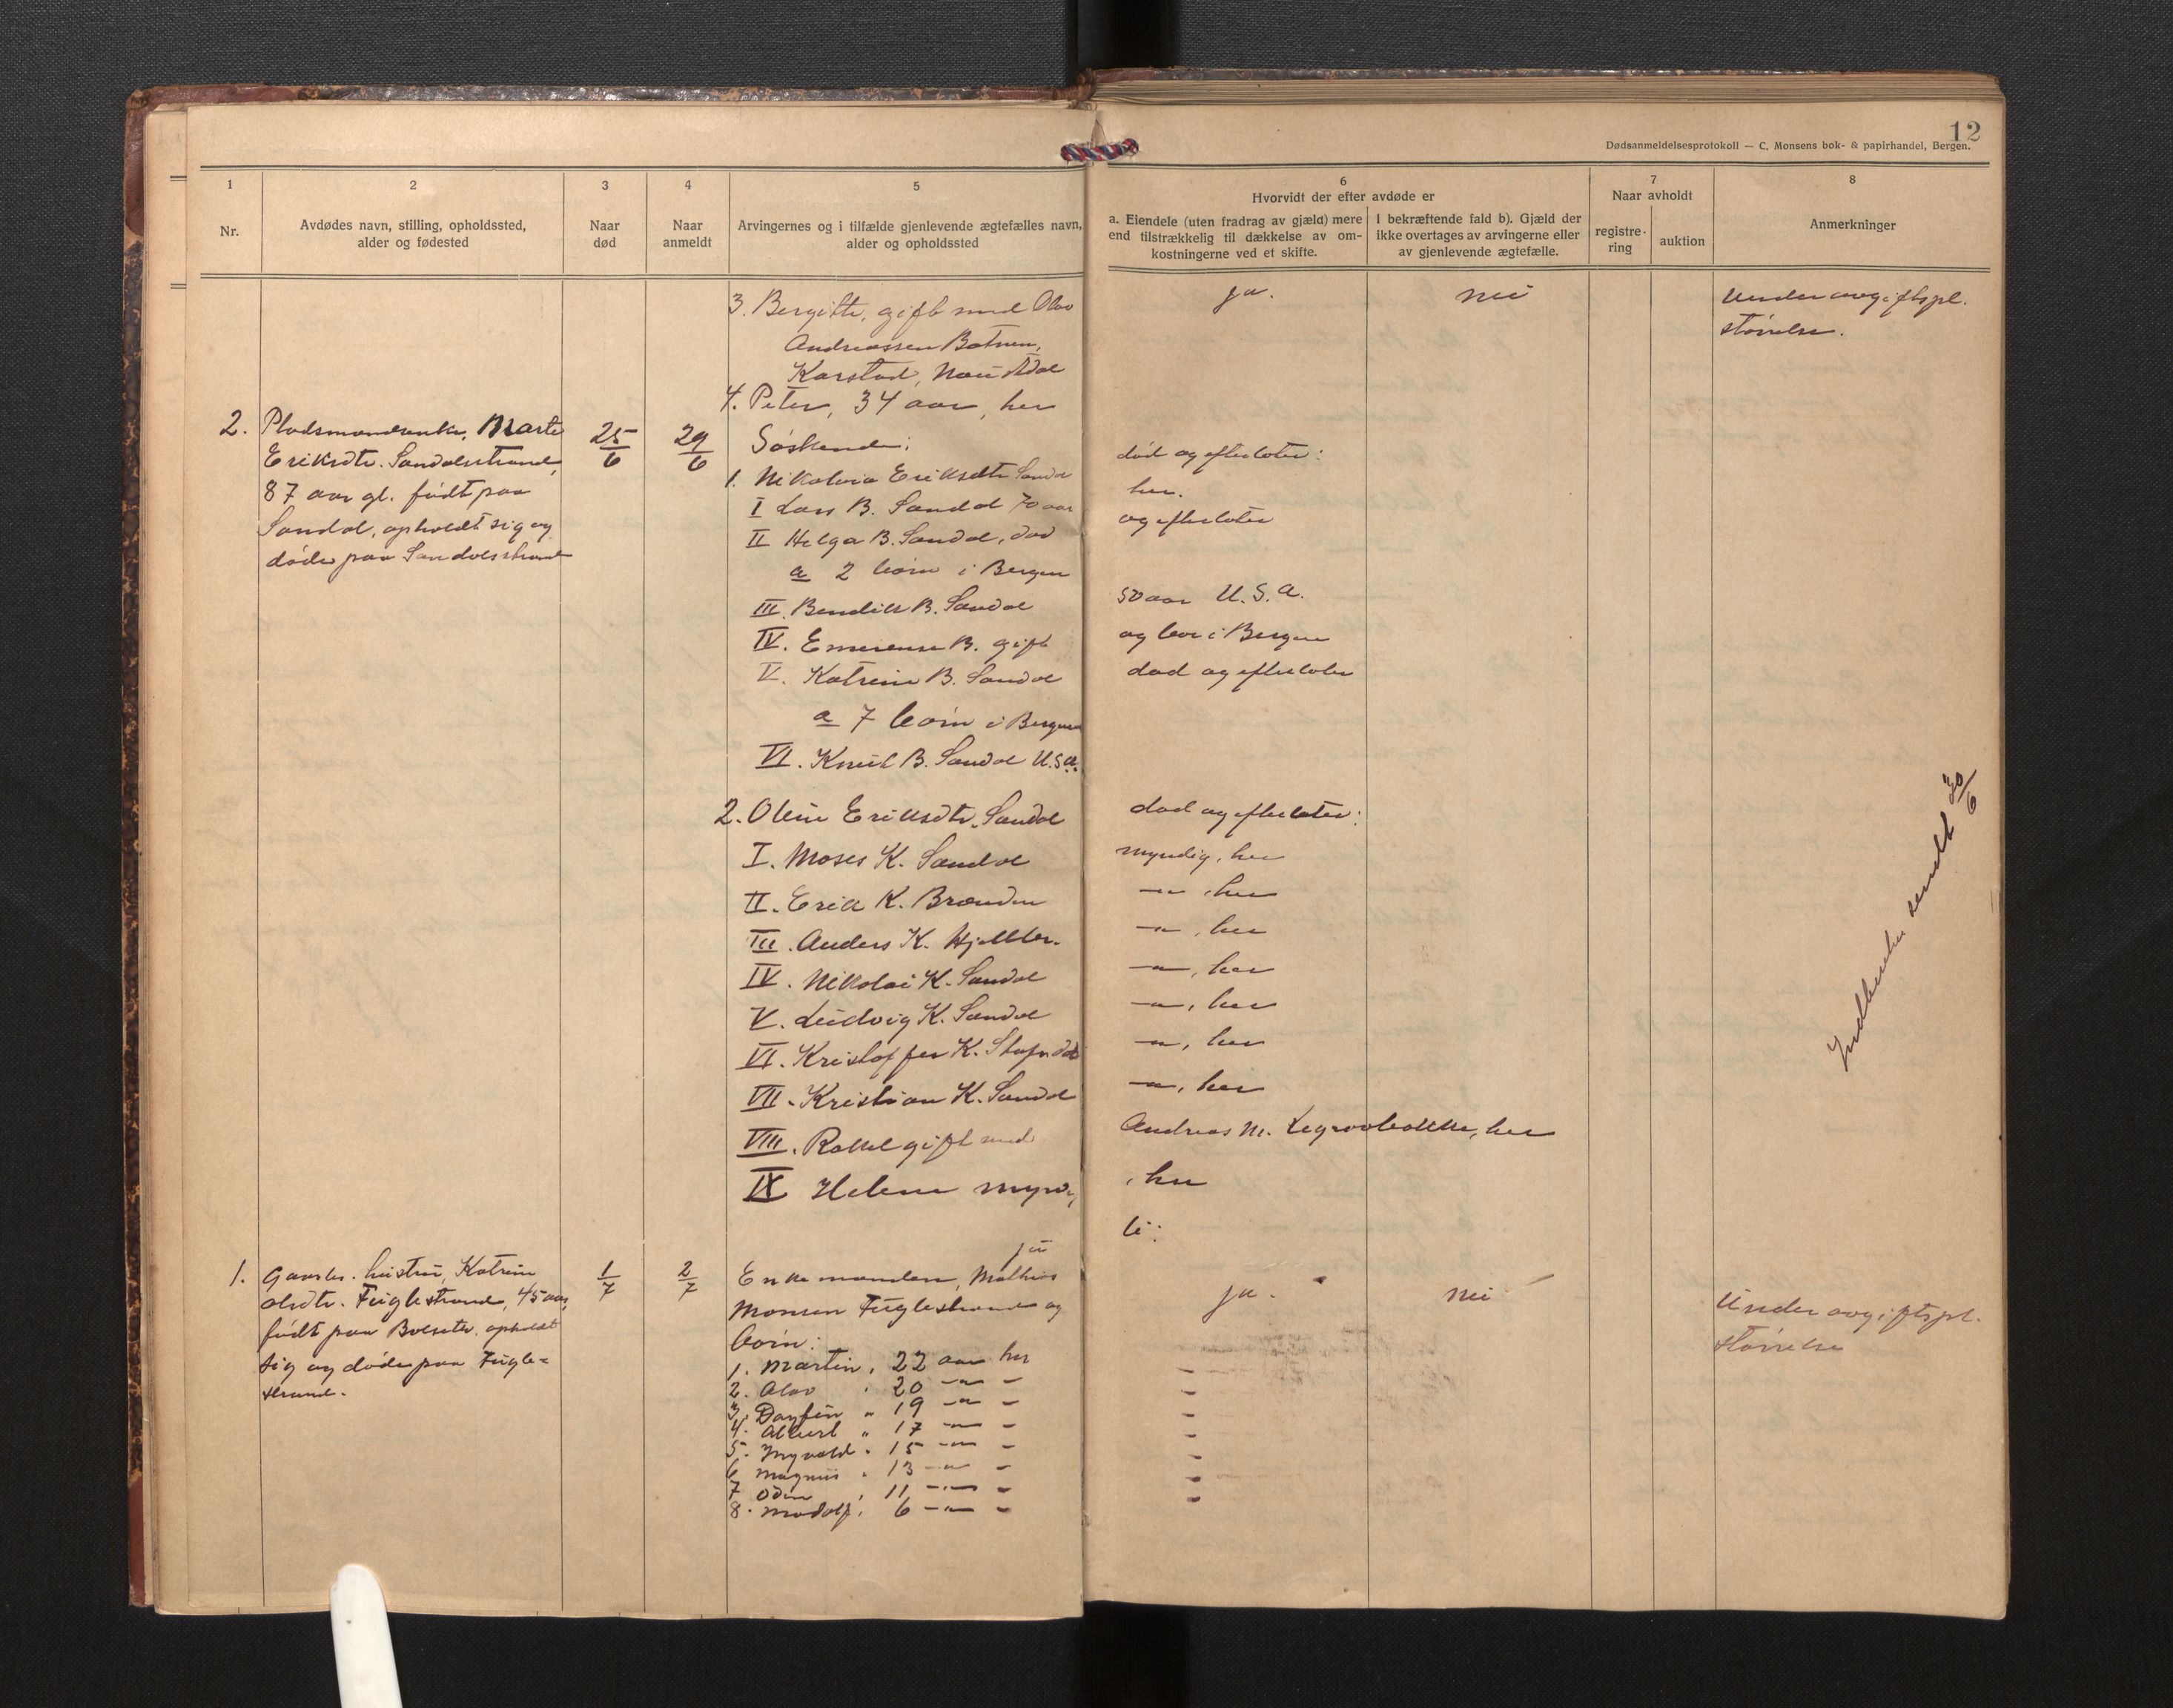 12
Dødsanmeldelsesprotokoll — C. Monsens bok- & papirhandel, Bergen.
1 2 3 4 5 6 7 8
Nr.
Avdødes navn, stilling, opholdssted,
alder og fødested
Naar
død
Naar
anmeldt
Arvingernes og i tilfælde gjenlevende ægtefælles navn,
alder og opholdssted
Hvorvidt der efter avdøde er
a. Eiendele (uten fradrag av gjæld) mere
end tilstrækkelig til dækkelse av om-
kostningerne ved et skifte.
I bekræftende fald b). Gjæld der
ikke overtages av arvingerne eller
av gjenlevende ægtefælle.
Naar avholdt
registre-
ring
auktion
Anmerkninger
3. Bergitte, gift med Olav
Andreassen Botnen,
Karstad, Naustdal
4. Peter, 34 aar, her
ja.
nei
Under avgiftspl.
størrelse.
2.
Pladsmandsenke, Marte
Eriksdtr. Sandalsstrand,
87 aar gl. født paa
Sandal, opholdt sig og
døde paa Sandalsstrand
25/6
29/6
Søskende:
1. Nikolvia Eriksdtr Sandal død og efterlater:
I Lars B. Sandal 70 aar her.
II Helga B. Sandal, død og efterlater
a 2 børn i Bergen
III. Bendik B. Sandal 50 aar U.S.A.
IV. Emerense B. gift og bor i Bergen
V. Katrine B. Sandal død og efterlater
a 7 børn i Bergen
VI. Knut B. Sandal U.S.A.
2. Oline Eriksdtr. Sandal død og efterlater:
I. Moses K. Sandal myndig, her
II. Erik K. Brænden —"— her
III. Anders K. —"—, her
IV. Nikolai K. Sandal —"—, her
V. Ludvig K. Sandal —"—, her
VI. Kristoffer K. —"—, her
VII. Kristian K. Sandal —"—, her
VIII. Rakel gift med Andreas M. her
IX Helene myndig, her
Indberetn. sendt 30/6
1.
Gaardbr. hustru, Katrine
Olsdtr. Fuglestrand, 45 aar,
født paa opholdt
sig og døde paa Fugle=
strand.
1/7
2/7
Enkemanden, Mathias
Monsen Fuglestrand og
børn:
1. Martin, 22 aar her
2. Olav, 20 —"— –
3. Dagfin " 19 —"— –
4. Albert " 17 —"— –
5. Ingvald " 15 —"— –
6 Magnus " 13 —"— –
7 Odin , 11 —"— –
8. Modolf, 6 —"— –
ja.
nei
Under avgiftspl.
størrelse